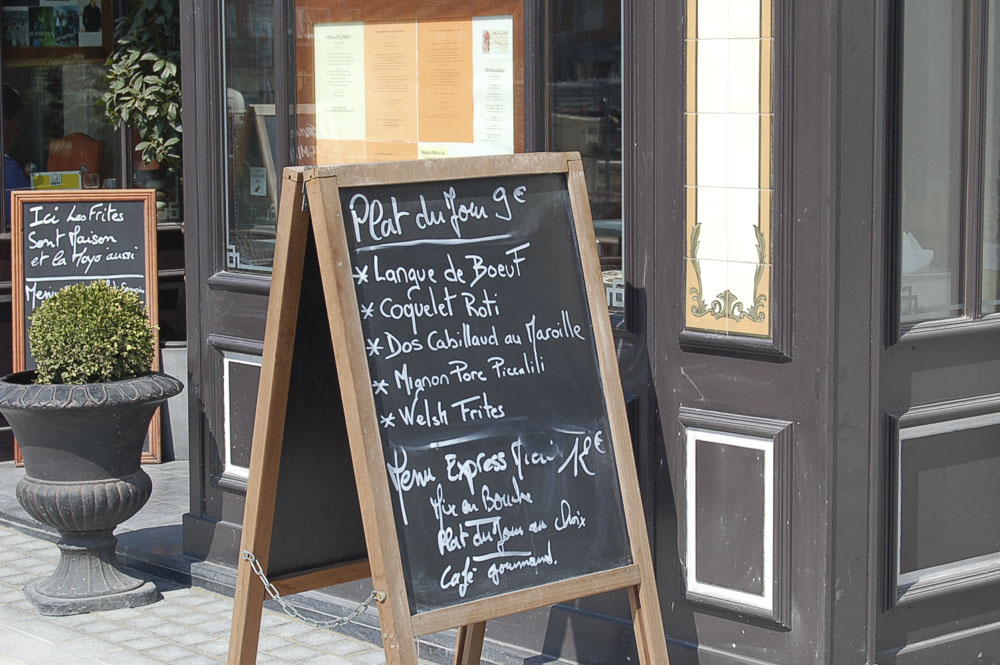 Ici Les Frites
Sont Maison
et la Mayo aussi
Menu
Plat du Jour 9€
* Langue de Boeuf
* Coquelet Roti
* Dos Cabillaud au Maroille
* Mignon Porc Piccalili
* Welsh Frites
Menu Express Midi 12€
Mise en Bouche
Plat du Jour au choix
Café gourmand.